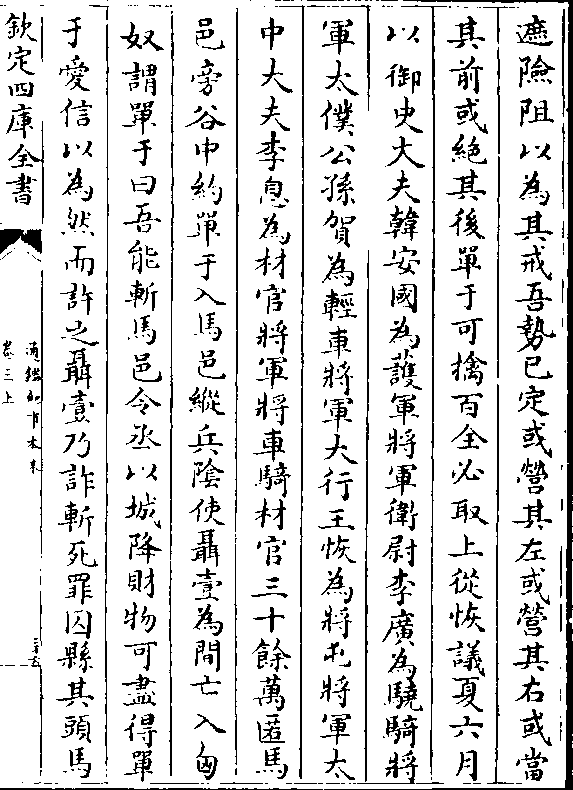 遮險阻以為其戒吾勢已定或營其左或營其右或當
其前或絶其後單于可擒百全必取上從恢議夏六月
以御史大夫韓安國為護軍將軍衛尉李廣為驍騎將
軍太僕公孫賀為輕車將軍大行王恢為將屯將軍太
中大夫李息為材官將軍將車騎材官三十餘萬匿馬
邑旁谷中約單于入馬邑縱兵陰使聶壹為間亡入匈
奴謂單于曰吾能斬馬邑令丞以城降財物可盡得單
于愛信以為然而許之聶壹乃詐斬死罪囚縣其頭馬
欽定四庫全書
通鑑紀事本末
卷三上